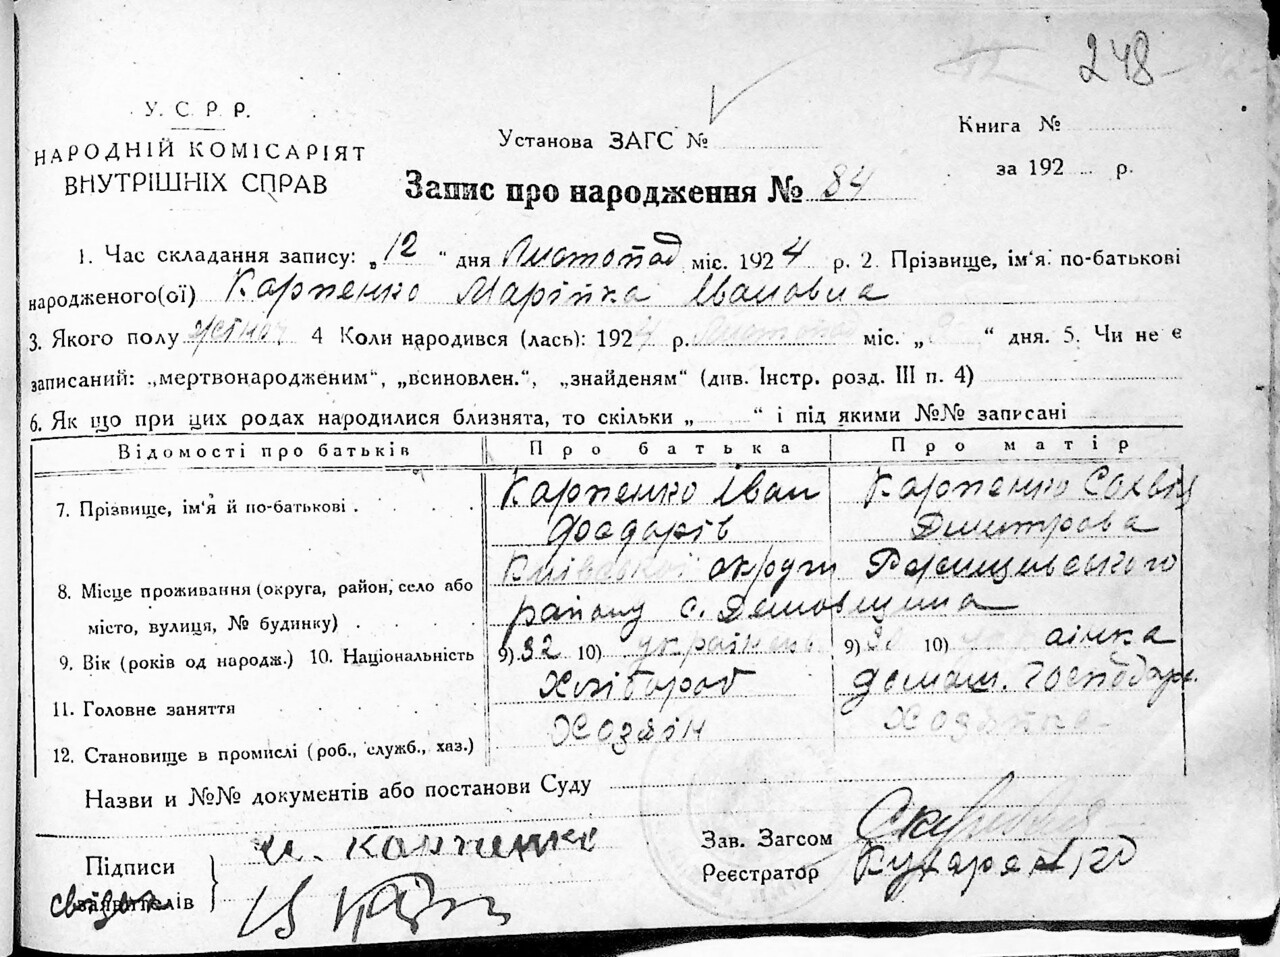 248
У. С. Р. Р.
НАРОДНІЙ КОМІСАРІЯТ
ВНУТРІШНІХ СПРАВ
Установа ЗАГС №
Книга №
за 192 р.
Запис про народження № 84
1. Час складання запису: „12“ дня Листопад міс. 1924 р. 2. Прізвище, ім'я по-батькові
народженого(ої) Карпенко Марійка Івановна
3. Якого полу жіноч. 4 Коли народився (лась): 1924 р. листопад міс. „ “ дня. 5. Чи не є
записаний: „мертвонародженим“, „всиновлен.“, „знайденям“ (див. Інстр. розд. III п. 4)
6. Як що при цих родах народилися близнята, то скільки „ “ і під якими №№ записані
Відомості про батьків Про батька Про матір
7. Прізвище, ім'я й по-батькові Карпенко Іван Карпенко
Федорів Дмитрова
8. Місце проживання (округа, район, село або Київської округи Ржищівського
місто, вулиця, № будинку) району с.
9. Вік (років од народж.) 10. Національність 9) 32 10) українець 9) 30 10)
11. Головне заняття Хлібороб домаш. господар.
12. Становище в промислі (роб., служб., хаз.) Хозяїн Хозяйка
Назви и №№ документів або постанови Суду
Підписи И. Карпенко Зав. Загсом
заявителів свідків Реєстратор